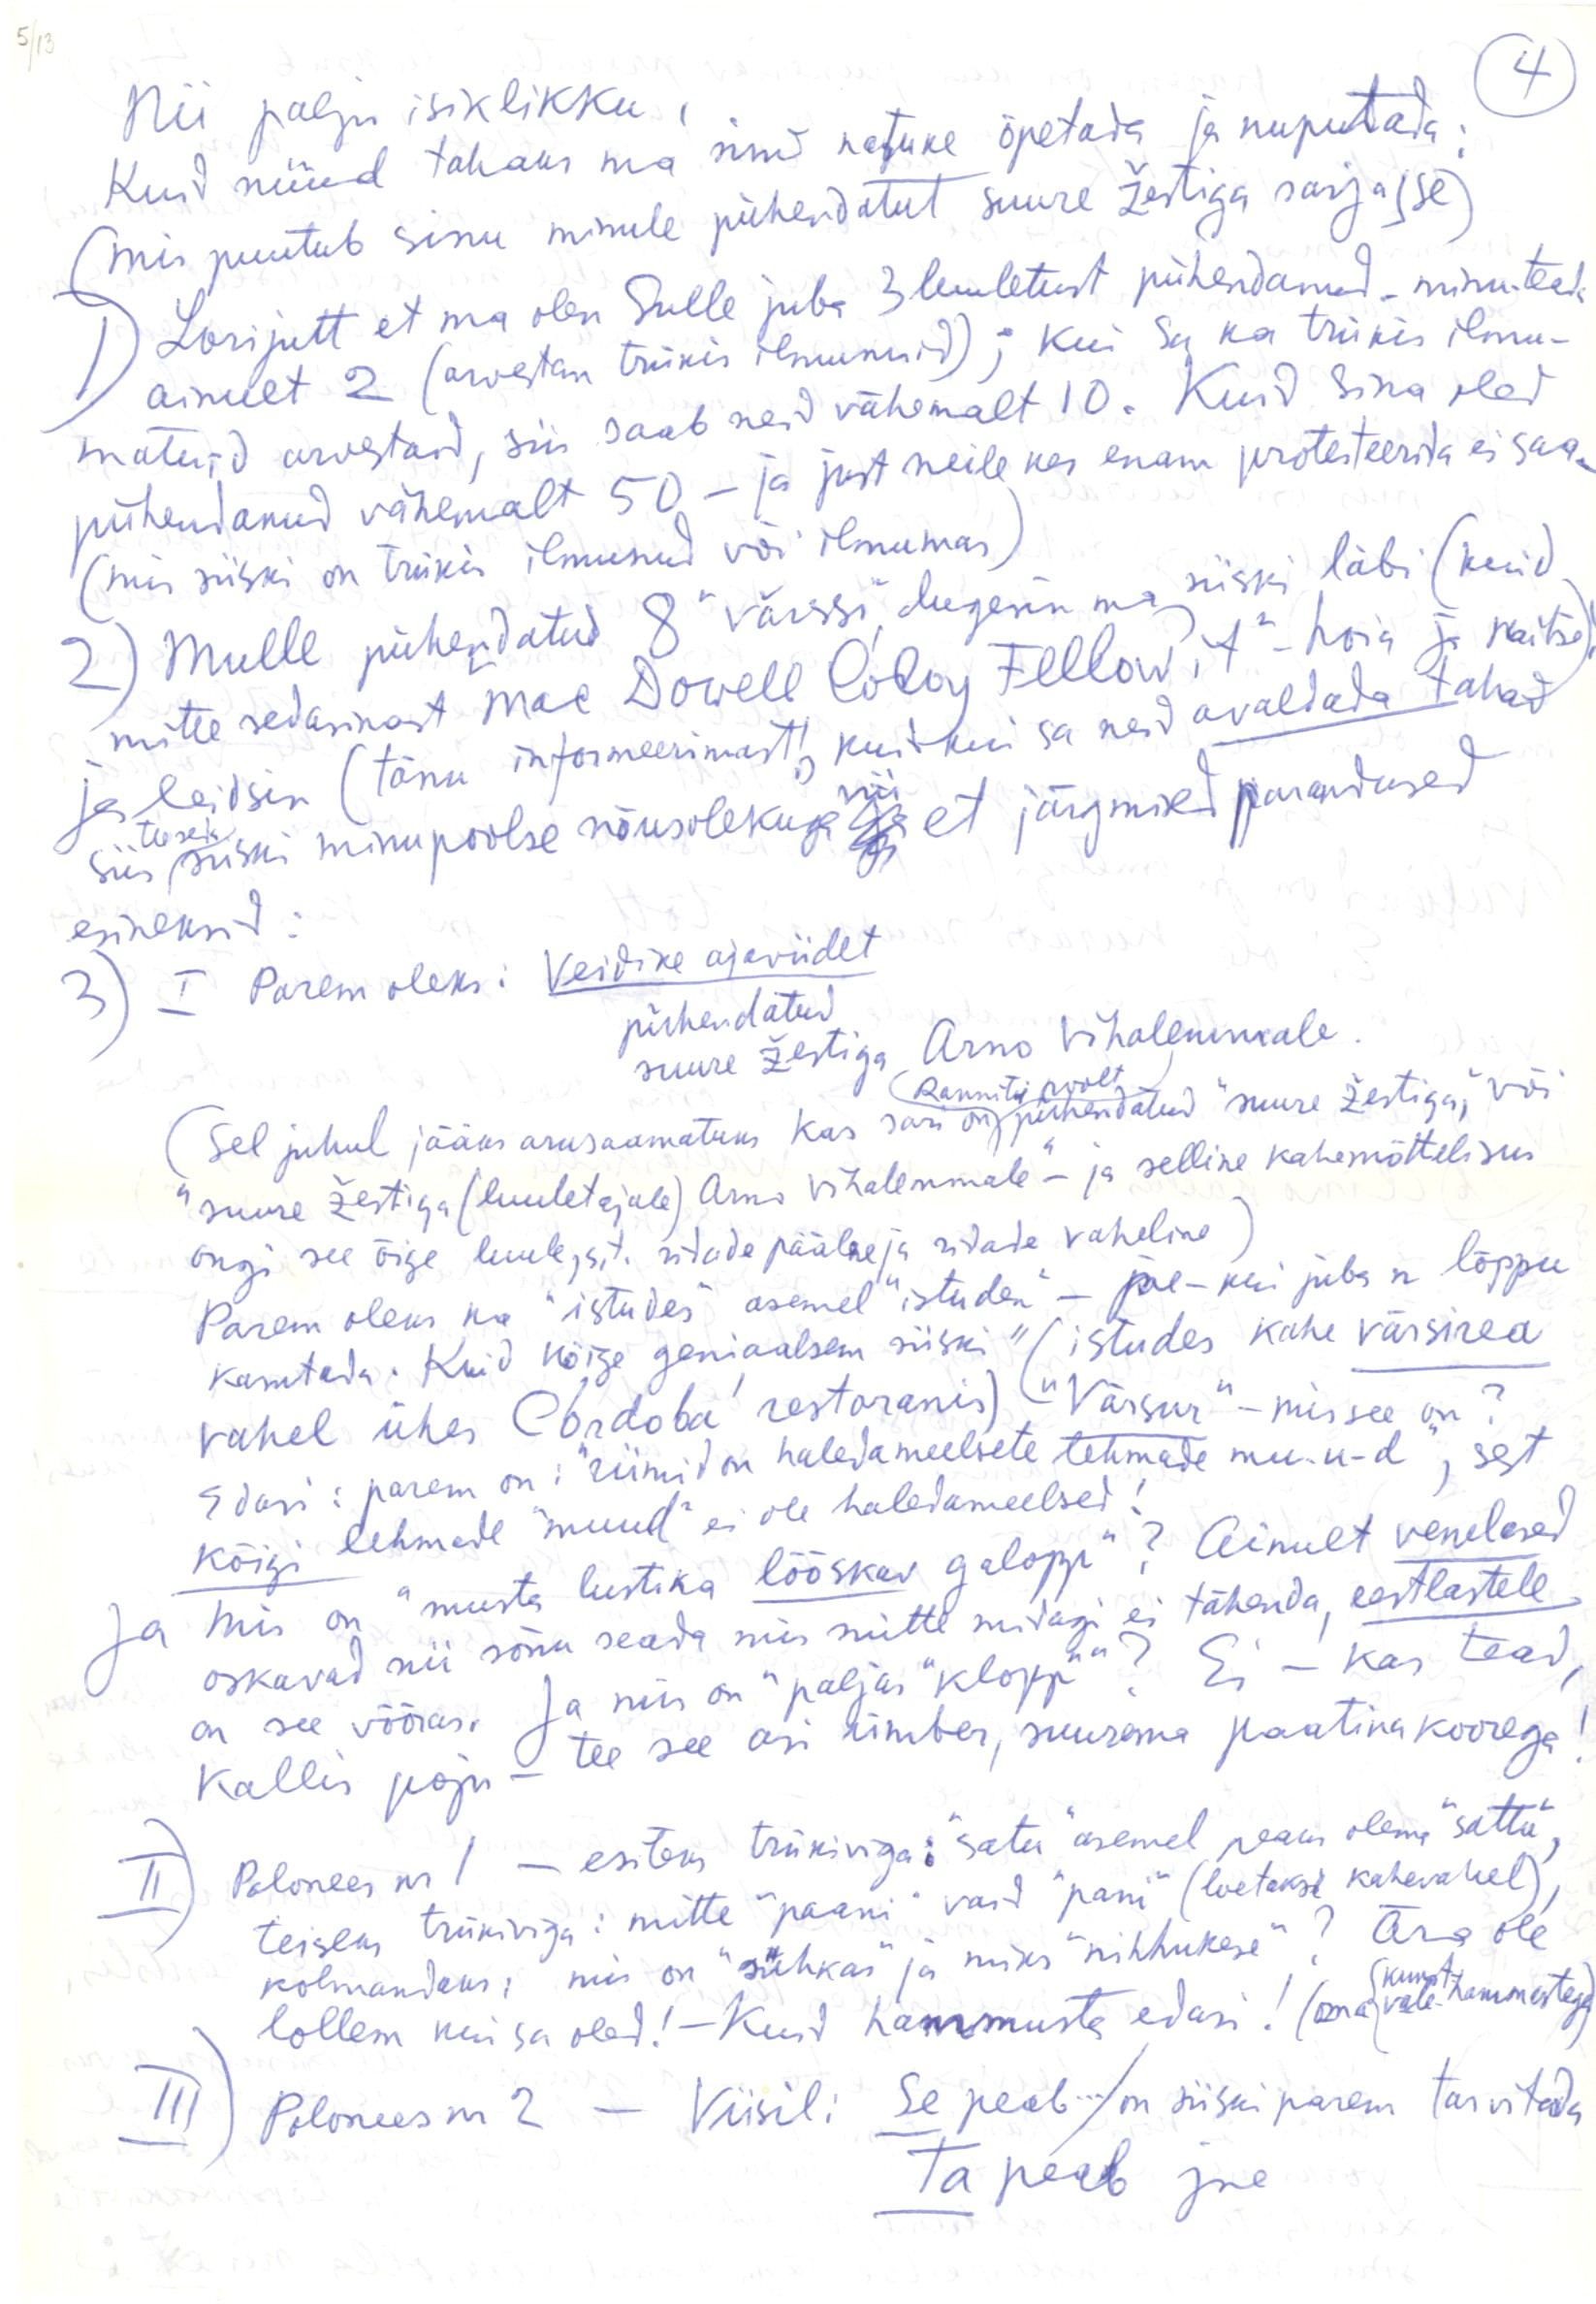 5/13
4
Nii palju isiklikku,
Kuid nüüd tahaks ma sind natuke õpetada ja nuputada:
(mis puutub sinu minule pühendatut suure žestiga sarja(sse)
1) Lorijutt et ma olen Sulle juba 3 luuletust pühendanud - minu teada
ainult 2 (arvestan trükis ilmunuid); kui sa ka trükis ilmu-
matuid arvestad, siis saab neid vähemalt 10. Kuid Sina oled
pühendanud vähemalt 50 - ja just neile kes enam protesteerida ei saa.
(mis siiski on trükis ilmunud või ilmumas)
2) Mulle pühendatud 8 "värssi" lugesin ma siiski läbi (kuid
mitte sedasinast Mac Dowell Colony Fellow'it" - hoia ja kaitse)!
ja leidsin (tänu informeerimast!, kuid kui sa neid avaldada tahad
siis siiski minupoolse nõusolekuga nii et järgmised parandused
esineksid:
3) I Parem oleks: Veidike ajaviidet
pühendatud
suure žestiga Arno Vihalemmale.
(Sel juhul jääks arusaamatuks kas sari on (Rannitu poolt) pühendatud "suure žestiga," või
"suure žestiga (luuletajale) Arno Vihalemmale" - ja selline kahemõttelisus
ongi see õige luule, s.t. ridade pääline ja ridade vaheline)
Parem oleks ka "istudes" asemel "istuden" - jae - kui juba n lõppu
kasutada. Kuid kõige geniaalsem siiski "(istudes kahe värsirea
vahel ühes Córdoba' restoranis) ("Värsur" - mis see on?
Edasi: parem on: "riimid on haledameelsete lehmade mu-u-d", sest
kõigi lehmade "muud" ei ole haledameelsed!
Ja mis on "musta lustika lõõskav galopp"? Ainult venelased
oskavad nii sõnu seada mis mitte midagi ei tähenda, eestlastele
on see võõras. Ja mis on "paljas "klopp""? Ei - kas tead,
kallis poju - tee see asi ümber, suurema paatina koorega!
II) Polonees nr 1 - esiteks trükiviga: "satu" asemel peaks olema "sattu",
teiseks trükiviga: mitte "paani" vaid "pani" (loetakse kahevahel),
kolmandaks, mis on "sühkas" ja miks "nihhukese"? Ära ole
lollem kui sa oled! - Kuid hammusta edasi! (oma (kunst- vale-hammastega)
III) Polonees nr 2 - Viisil: Se peab.../on siiski parem tarvitada
Ta peab jne